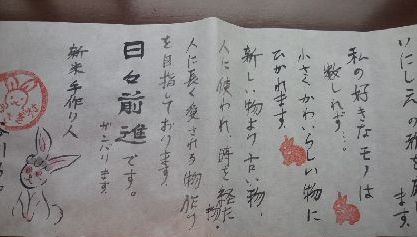 いにしえの
ます。
私の好きなモノは
数しれず…。
小さくかわいらしい物に
ひかれます。
新しい物より古い物、
人に使われ、時を経た物。
人に長く愛される物作り
を目指しております。
日々前進です。
ガンバリます。
新米手作り人